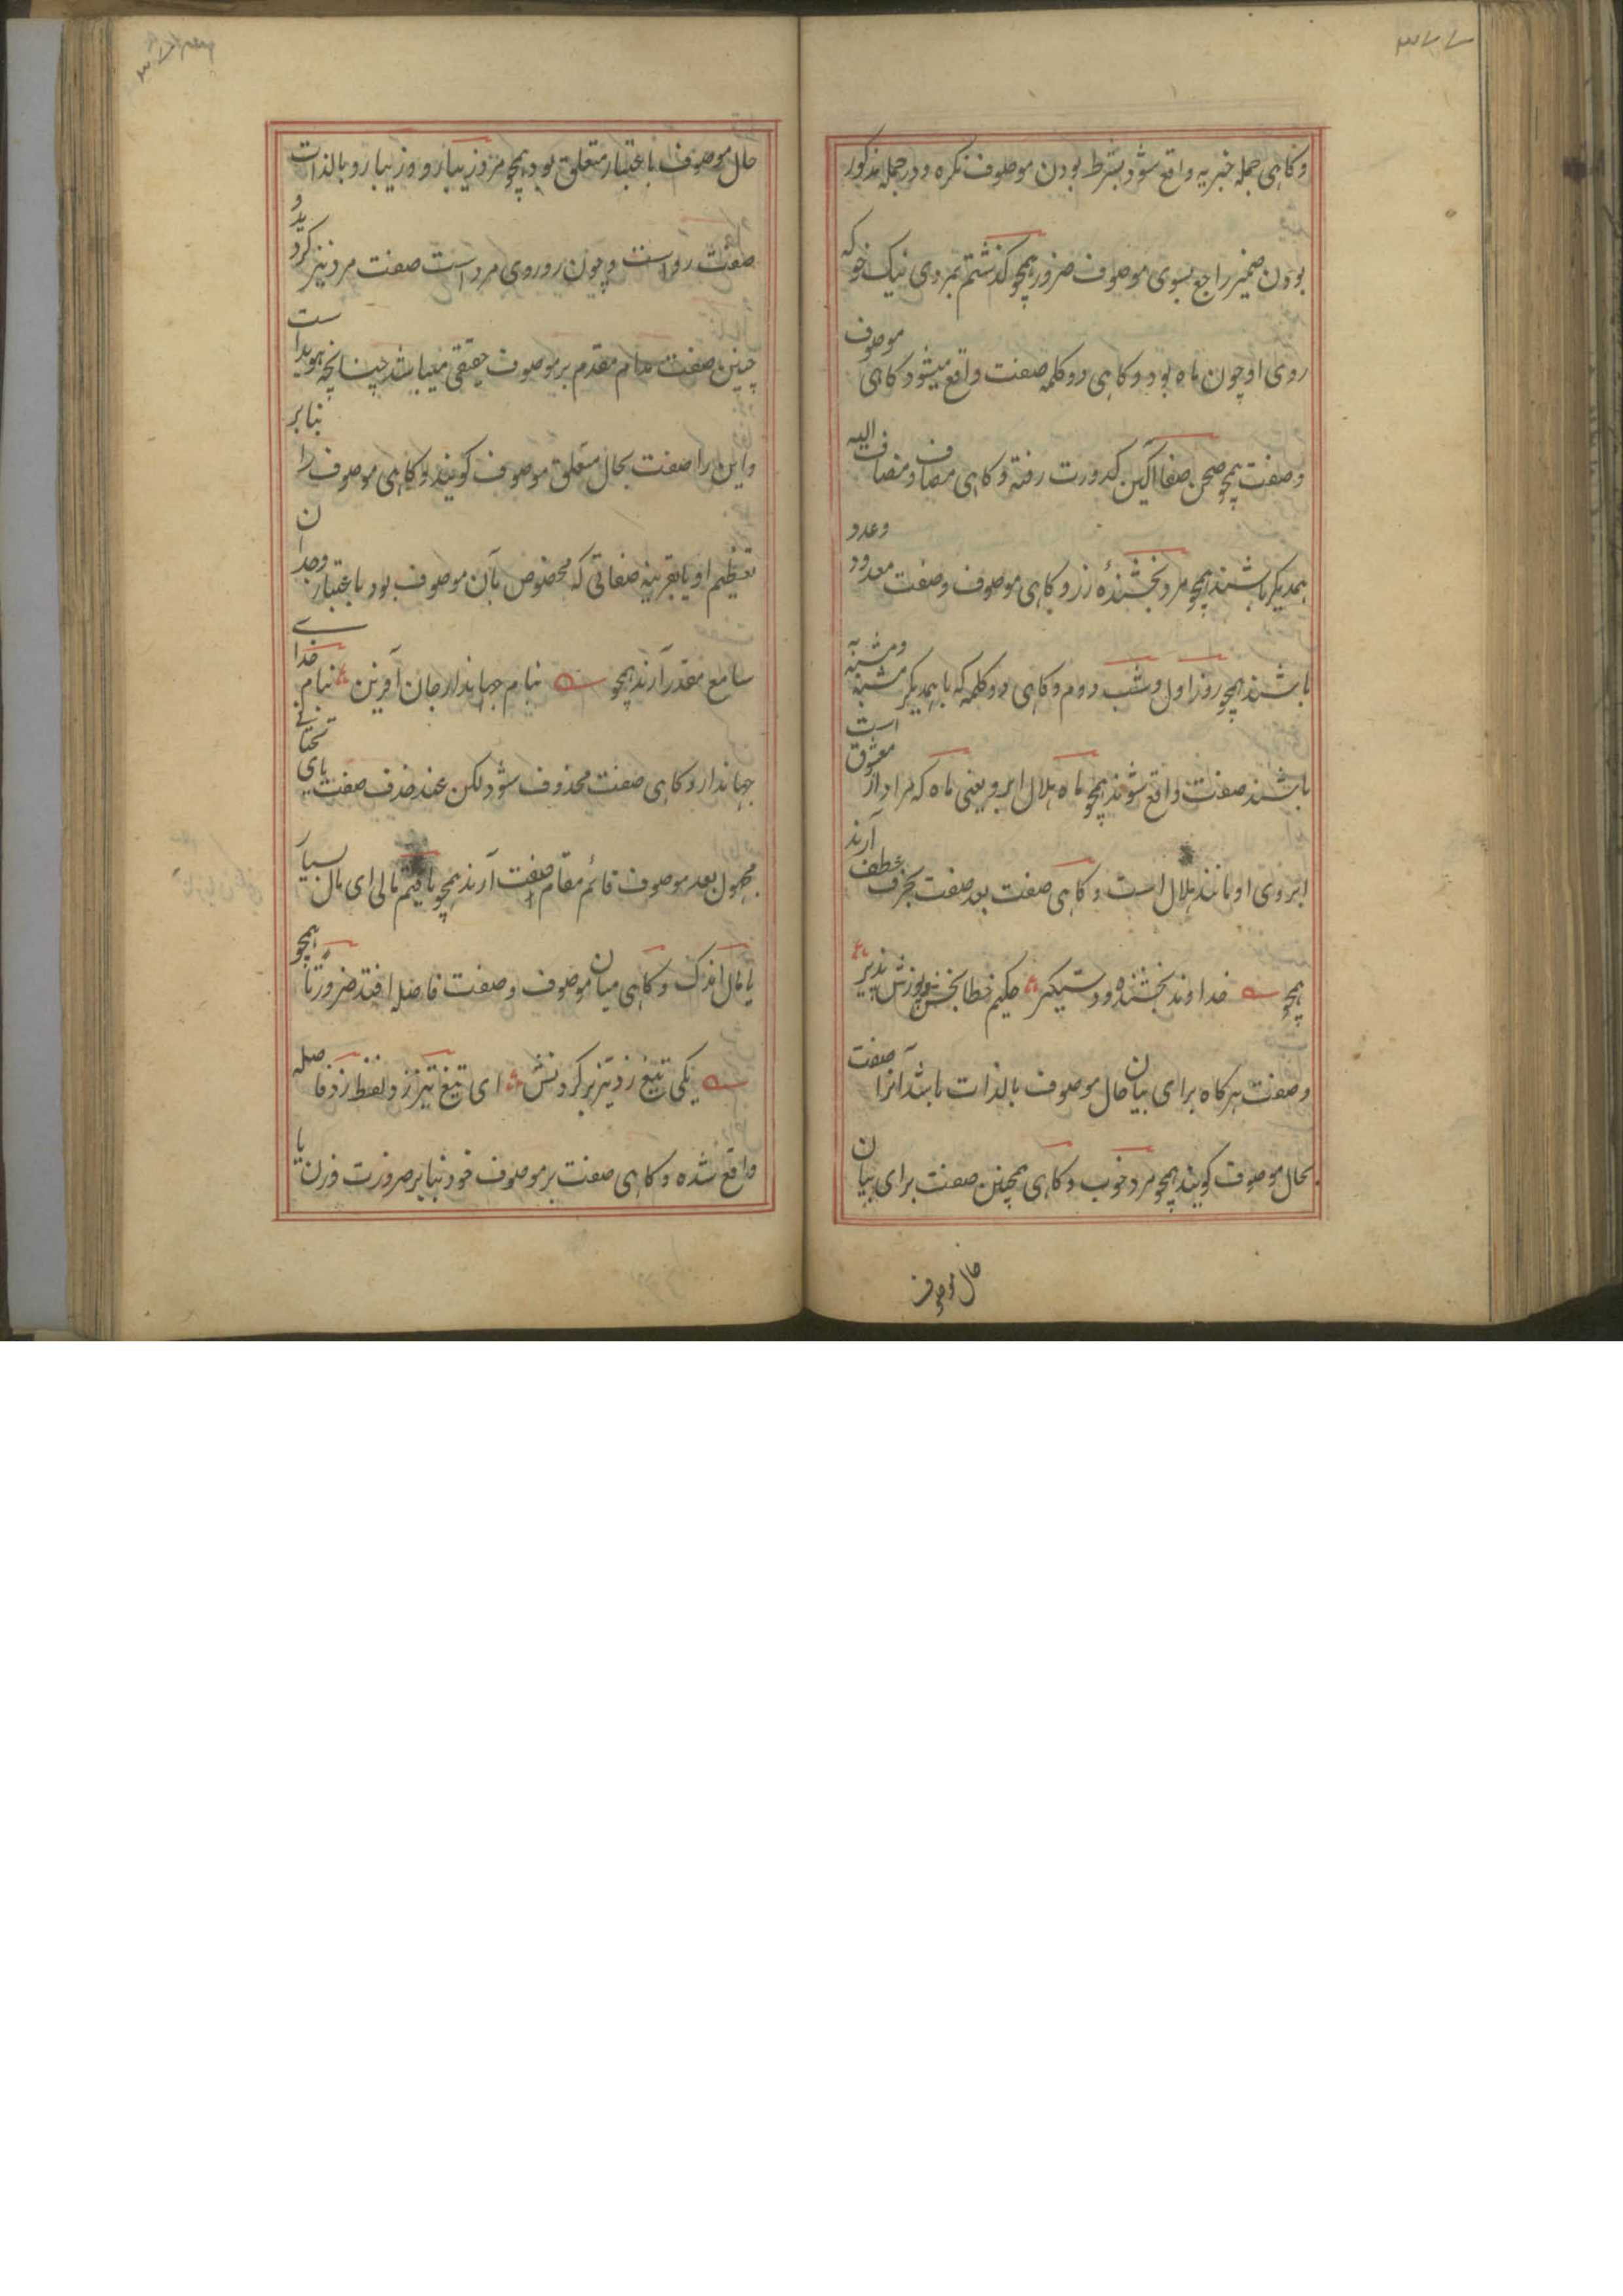 ۳۷۷
وکاہی جملہ خبریہ واقع شود بشرط بودن موصوف نکرہ ودر جملہ مذکور
بودن ضمیر راجع بسوی موصوف ضرور ہمچو گذشتم بمردی نیک خو کہ
روی او چون ماہ بود وکاہی دو کلمہ صفت واقع میشود کاہی موصوف
وصفت ہمچو صحن صفا آکین کدورت رفتہ وکاہی مضاف ومضاف الیہ
ہمدیکر باشند ہمچو مرد بخشندۂ زر وکاہی موصوف وصفت معدود وعدد
باشند ہمچو روز اول وشب دوم وکاہی دو کلمہ کہ با ہمدیکر مشبہ ومشبہ بہ
باشند صفت واقع شوند ہمچو ماہ ہلال ابرو یعنی ماہ کہ مراد از معشوق است
ابروی او مانند ہلال است وکاہی صفت بعد صفت بحرف عطف آرند
ہمچو خداوند بخشندہ ودستکیر حکیم خطا بخش وپوزش پذیر
وصفت ہرکاہ برای بیان حال موصوف بالذات باشد آنرا صفت
بحال موصوف کویند ہمچو مرد خوب وکاہی ہمچنین صفت برای بیان
حال موصوف
حال موصوف باعتبار متعلق بود ہمچو مرد زیبا رو وزیبا رو بالذات
صفت رو است وچون رو روی مرد است صفت مرد نیز کردیدہ
چنین صفت مدام مقدم بر موصوف حقیقی میباشد چنانچہ ہویدا ست
واین را صفت بحال متعلق موصوف کویند وکاہی موصوف را بنابر
تعظیم او یا بقرینہ صفاتی کہ مخصوص بآن موصوف بود باعتبار وجدان
سامع مقدر آرند ہمچو بنام جہاندار جان آفرین بنام خدای
جہاندار وکاہی صفت محذوف شود لکن عند حذف صفت یای تحتانی
مجہول بعد موصوف قائم مقام صفت آرند ہمچو یافتم مالی ای مال بسیار
یا مال اندک وکاہی میان موصوف وصفت فاصلہ افتد ضرورتا ہمچو
یکی تیغ زد تیز بر کردنش ای تیغ تیز زد ولفظ زد فاصلہ
واقع شدہ وکاہی صفت بر موصوف خود بنابر ضرورت وزن یا